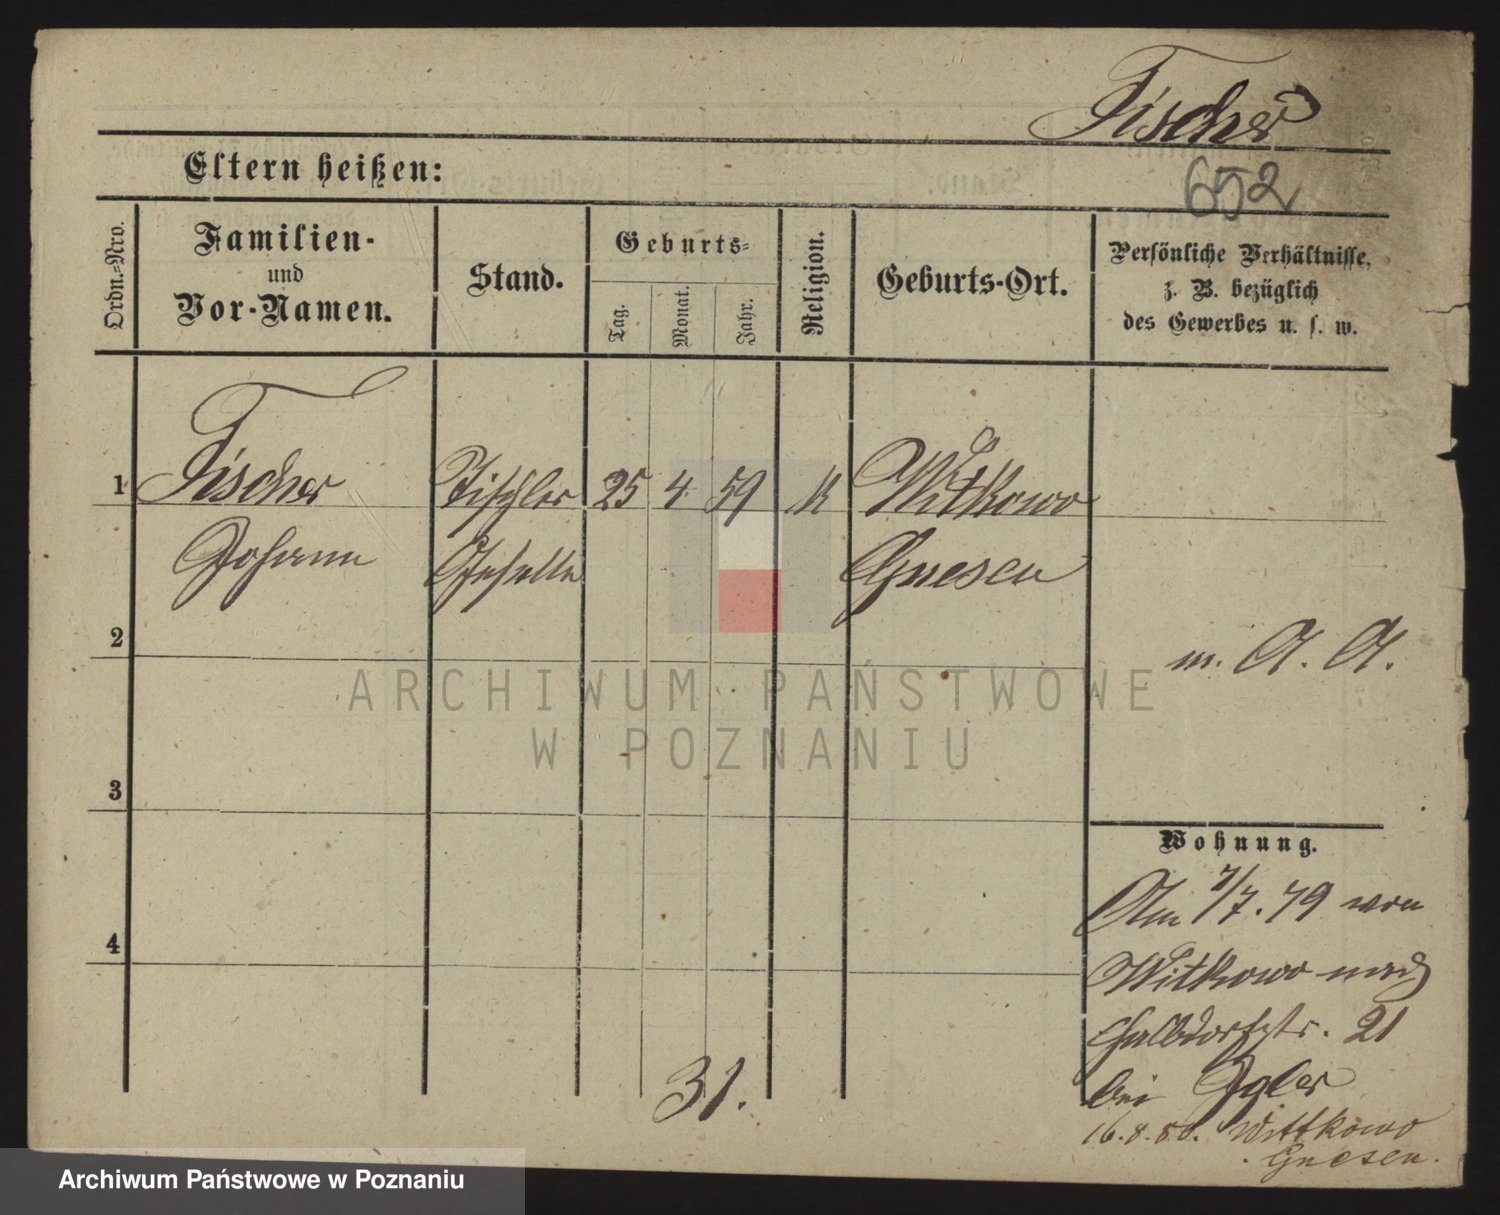 Fischer
652
Eltern heißen:
Ordn.=Nro.
Familien-
und
Vor-Namen.
Stand.
Geburts=
Tag.
Monat.
Jahr.
Religion.
Geburts-Ort.
Persönliche Verhältnisse,
z. B. bezüglich
des Gewerbes u. s. w.
1 Fischer Tischler 25 4 59 K Witkowo
Johann Geselle Gnesen
2
m. A. A.
ARCHIWUM PAŃSTWOWE
W POZNANIU
3
Wohnung.
Am 7/7. 79 von
4
Witkowo nach
Halbdorfstr. 21
bei
31.
16. 8. 80. Wittkowo
Gnesen.
Archiwum Państwowe w Poznaniu